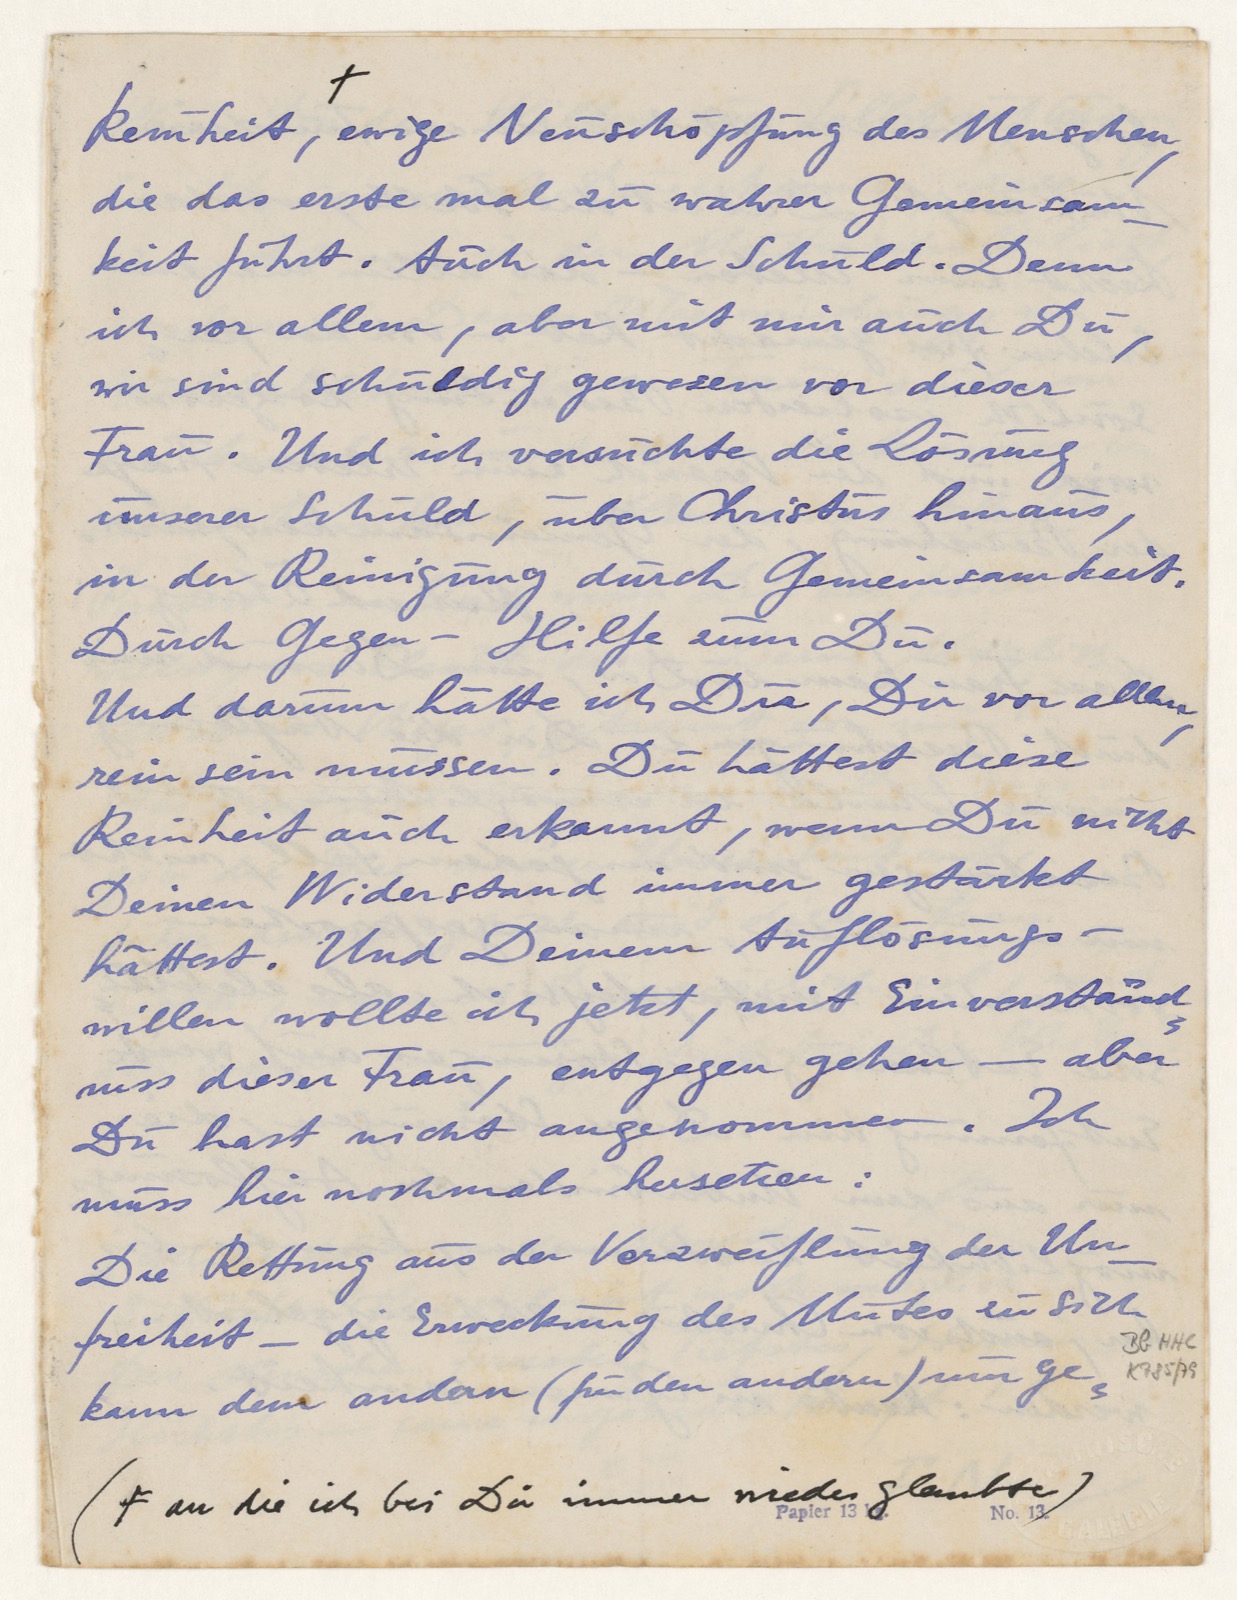 †
Reinheit, ewige Neuschöpfung des Menschen,
die das erste mal zu wahrer Gemeinsam-
keit führt. Auch in der Schuld. Denn
ich vor allem, aber mit mir auch Du,
wir sind schuldig gewesen vor dieser
Frau. Und ich versuchte die Lösung
unserer Schuld, über Christus hinaus,
in der Reinigung durch Gemeinsamkeit.
Durch Gegen- Hilfe zum Du.
Und darum hätte ich Dir, Dir vor allem,
rein sein müssen. Du hättest diese
Reinheit auch erkannt, wenn Du nicht
Deinen Widerstand immer gestärkt
hättest. Und Deinem Auflösungs-
willen wollte ich jetzt, mit Einverständ-
niss dieser Frau, entgegen gehen — aber
Du hast nicht angenommen. Ich
muss hier nochmals hersetzen:
Die Rettung aus der Verzweiflung der Un-
freiheit – die Erweckung des Mutes zu sich
kann dem andern (für den andern) nur ge-
BG HHC
K785/79
(† an die ich bei Dir immer wieder glaubte)
Papier 13 No. 13.